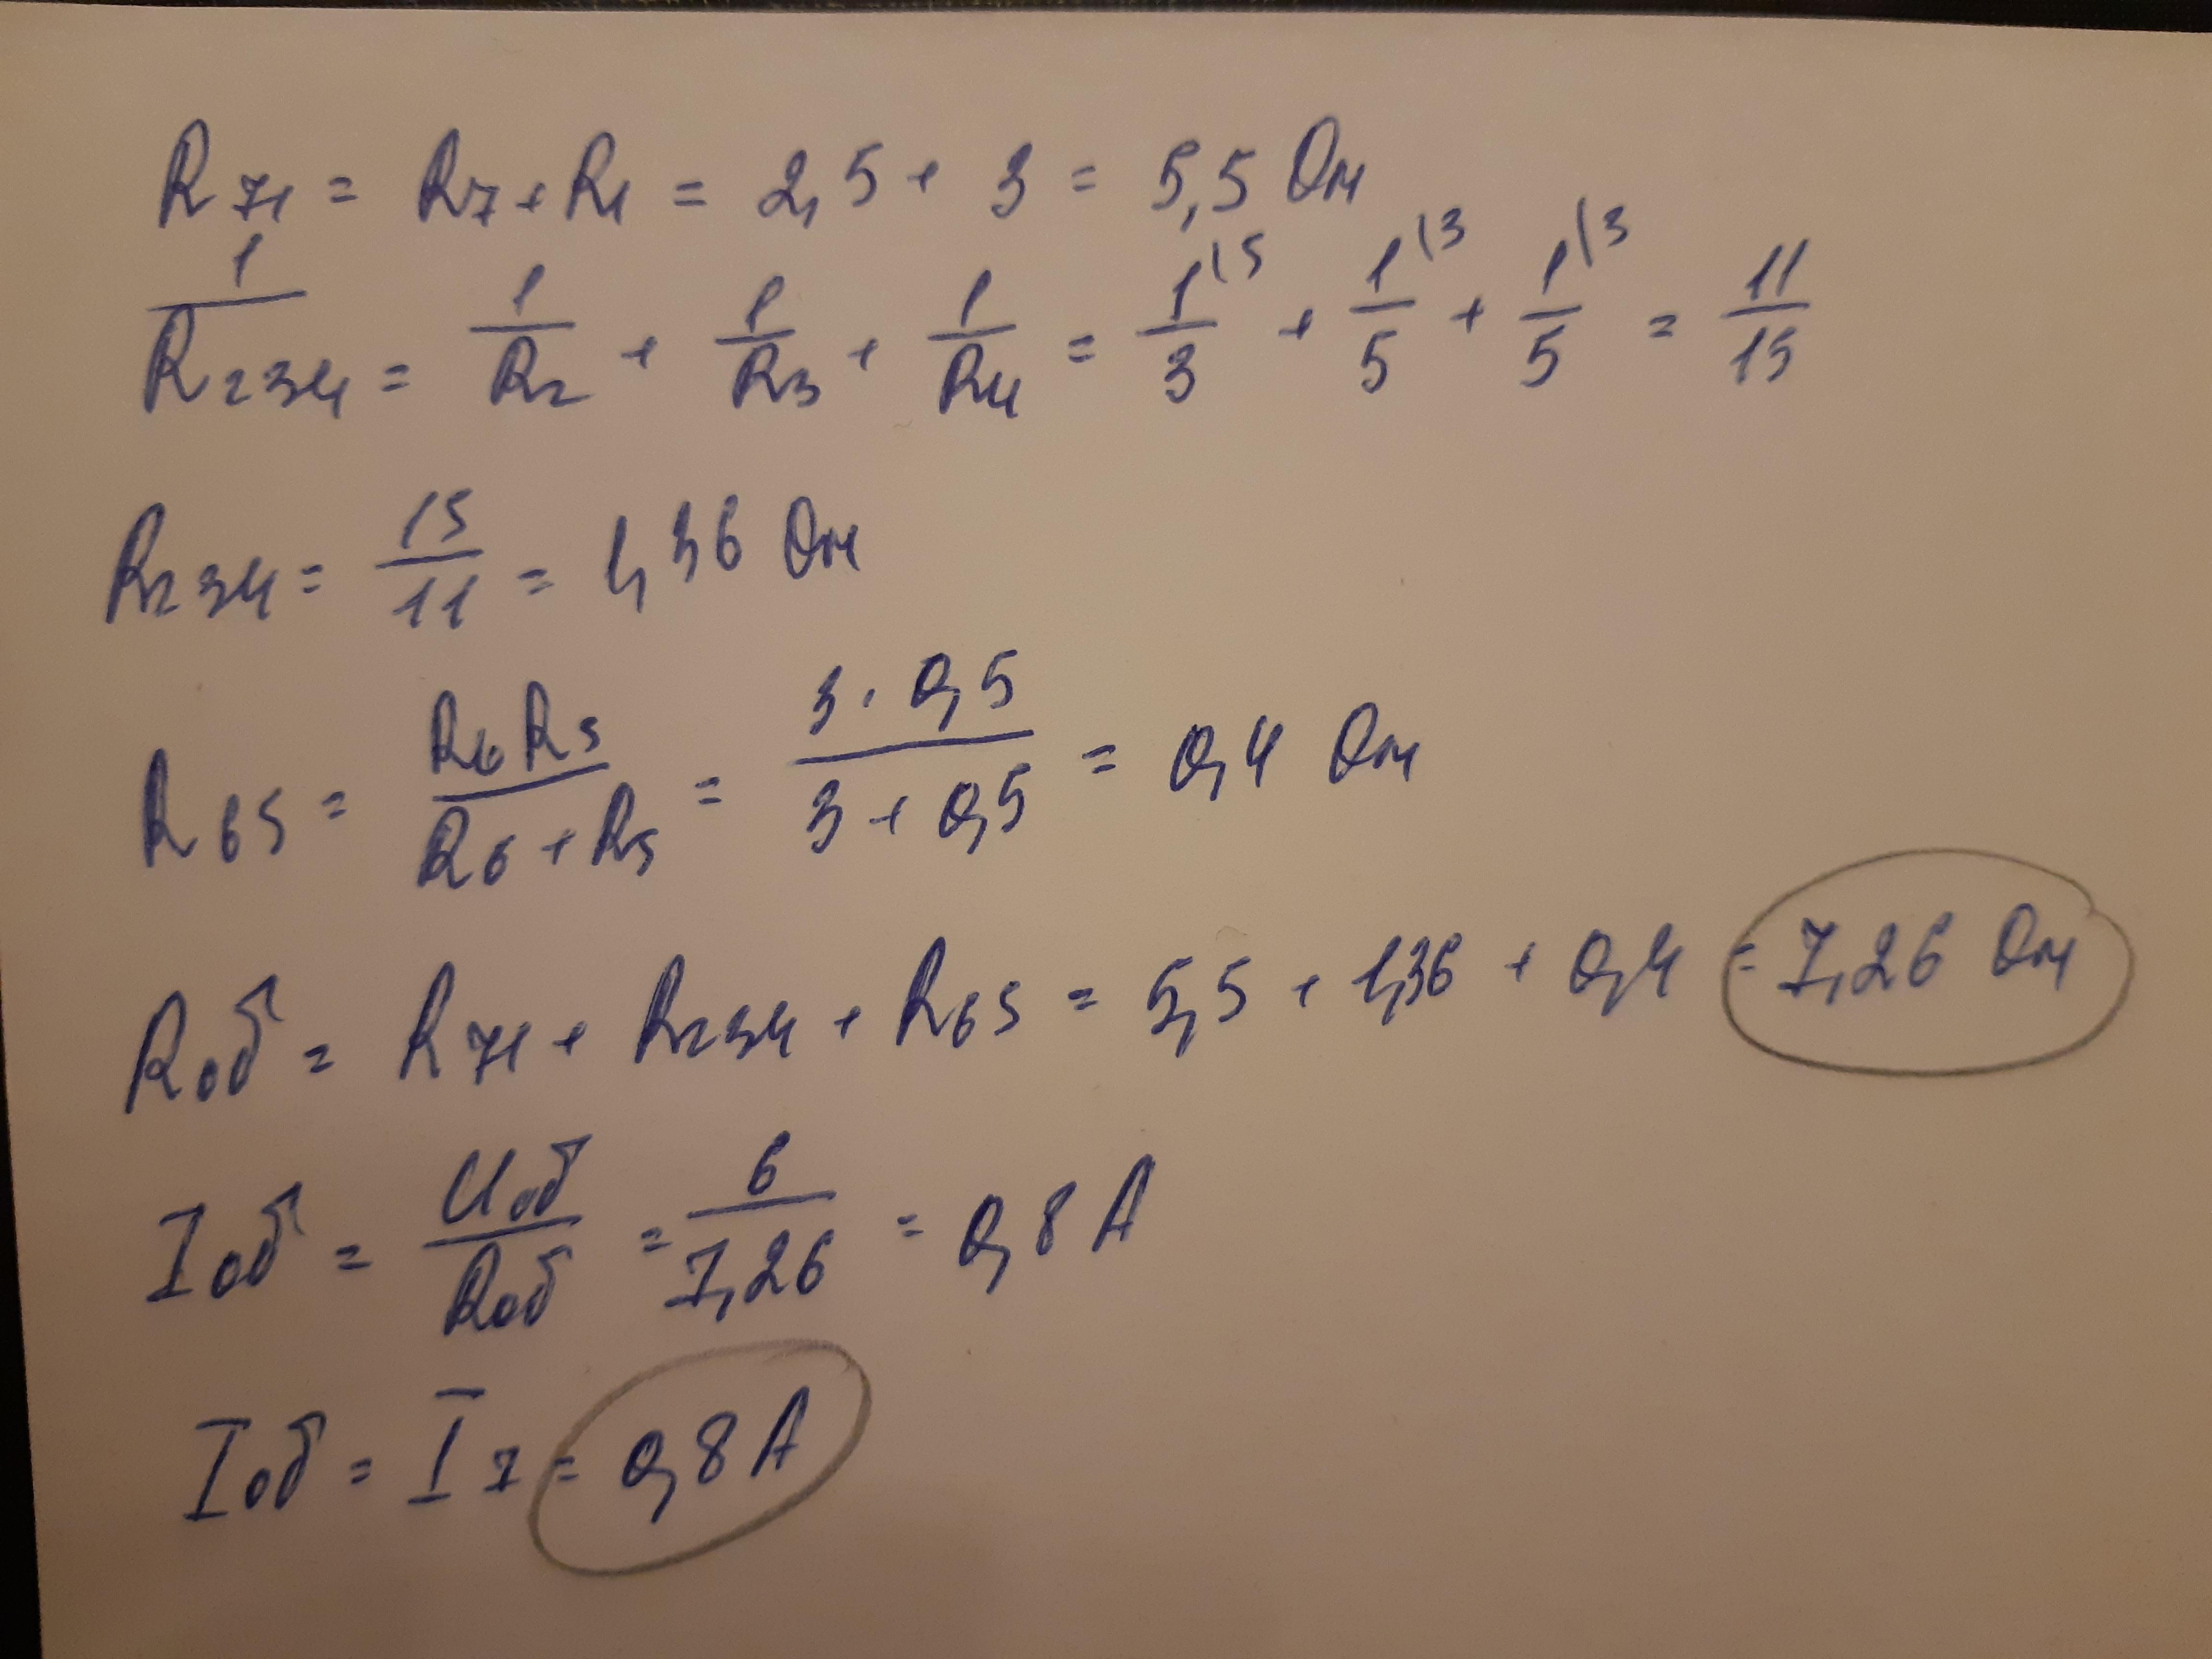 R71 = R7 + R1 = 2,5 + 3 = 5,5 Ом
1/R234 = 1/R2 + 1/R3 + 1/R4 = 1\5/3 + 1\3/5 + 1\3/5 = 11/15
R234 = 15/11 = 1,36 Ом
R65 = R6 R5/R6 + R5 = 3 · 0,5/3 + 0,5 = 0,4 Ом
Rоб = R71 + R234 + R65 = 5,5 + 1,36 + 0,4 = 7,26 Ом
Iоб = Uоб/Rоб = 6/7,26 = 0,8 А
Iоб = I7 = 0,8 А